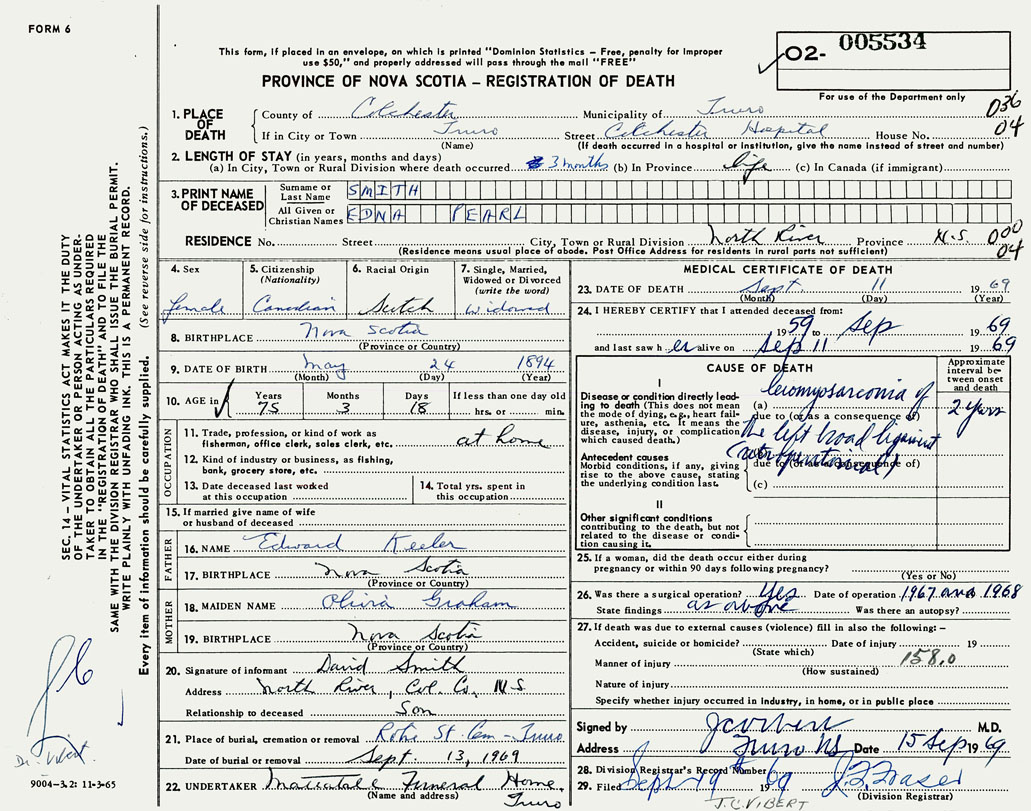 FORM 6
This form, if placed in an envelope, on which is printed "Dominion Statistics – Free, penalty for improper
use $50," and properly addressed will pass through the mail "FREE"
PROVINCE OF NOVA SCOTIA – REGISTRATION OF DEATH
02- 005534
For use of the Department only
036
04
1. PLACE OF DEATH
County of Colchester Municipality of Truro
If in City or Town Truro Street Colchester Hospital House No.
(Name) (If death occurred in a hospital or institution, give the name instead of street and number)
2. LENGTH OF STAY (in years, months and days)
(a) In City, Town or Rural Division where death occurred 3 months (b) In Province life (c) In Canada (if immigrant)
3. PRINT NAME OF DECEASED
Surname or Last Name SMITH
All Given or Christian Names EDNA PEARL
RESIDENCE No. Street City, Town or Rural Division North River Province N.S.
(Residence means usual place of abode. Post Office Address for residents in rural parts not sufficient)
000
04
4. Sex female
5. Citizenship (Nationality) Canadian
6. Racial Origin Scotch
7. Single, Married, Widowed or Divorced (write the word) Widowed
8. BIRTHPLACE Nova Scotia
(Province or Country)
9. DATE OF BIRTH May 24 1894
(Month) (Day) (Year)
10. AGE in Years 75 Months 3 Days 18 If less than one day old hrs. or min.
OCCUPATION
11. Trade, profession, or kind of work as fisherman, office clerk, sales clerk, etc. at home
12. Kind of industry or business, as fishing, bank, grocery store, etc.
13. Date deceased last worked at this occupation
14. Total yrs. spent in this occupation
15. If married give name of wife or husband of deceased
FATHER
16. NAME Edward Keeler
17. BIRTHPLACE Nova Scotia
(Province or Country)
MOTHER
18. MAIDEN NAME Olivia Graham
19. BIRTHPLACE Nova Scotia
(Province or Country)
20. Signature of informant David Smith
Address North River, Col. Co. N.S.
Relationship to deceased Son
21. Place of burial, cremation or removal Robie St Cem - Truro
Date of burial or removal Sept. 13, 1969
22. UNDERTAKER Funeral Home
(Name and address) Truro
MEDICAL CERTIFICATE OF DEATH
23. DATE OF DEATH Sept. 11 1969
(Month) (Day) (Year)
24. I HEREBY CERTIFY that I attended deceased from:
1959 to Sep 1969
and last saw her alive on Sep 11 1969
CAUSE OF DEATH
Approximate interval between onset and death
I
Disease or condition directly leading to death (This does not mean the mode of dying, e.g., heart failure, asthenia, etc. It means the disease, injury, or complication which caused death.)
(a) leiomyosarconia of 2 years
due to (or as a consequence of)
the left broad ligament
Antecedent causes
Morbid conditions, if any, giving rise to the above cause, stating the underlying condition last.
due to (or as a consequence of)
(c)
II
Other significant conditions contributing to the death, but not related to the disease or condition causing it.
25. If a woman, did the death occur either during pregnancy or within 90 days following pregnancy?
(Yes or No)
26. Was there a surgical operation? Yes Date of operation 1967 and 1968
State findings as above Was there an autopsy?
27. If death was due to external causes (violence) fill in also the following: –
Accident, suicide or homicide? Date of injury 19
(State which)
Manner of injury 158.0
(How sustained)
Nature of injury
Specify whether injury occurred in industry, in home, or in public place
Signed by J C Vibert M.D.
Address Truro NS Date 15 Sep 1969
28. Division Registrar's Record Number
29. Filed Sept 19 1969 Fraser
(Division Registrar)
J.C. VIBERT
SEC. 14 – VITAL STATISTICS ACT MAKES IT THE DUTY
OF THE UNDERTAKER OR PERSON ACTING AS UNDER-
TAKER TO OBTAIN ALL THE PARTICULARS REQUIRED
IN THE "REGISTRATION OF DEATH" AND TO FILE THE
SAME WITH THE DIVISION REGISTRAR WHO SHALL ISSUE THE BURIAL PERMIT.
WRITE PLAINLY WITH UNFADING INK. THIS IS A PERMANENT RECORD.
Every item of information should be carefully supplied. (See reverse side for instructions.)
Dr. Vibert.
9004–3.2: 11-3-65